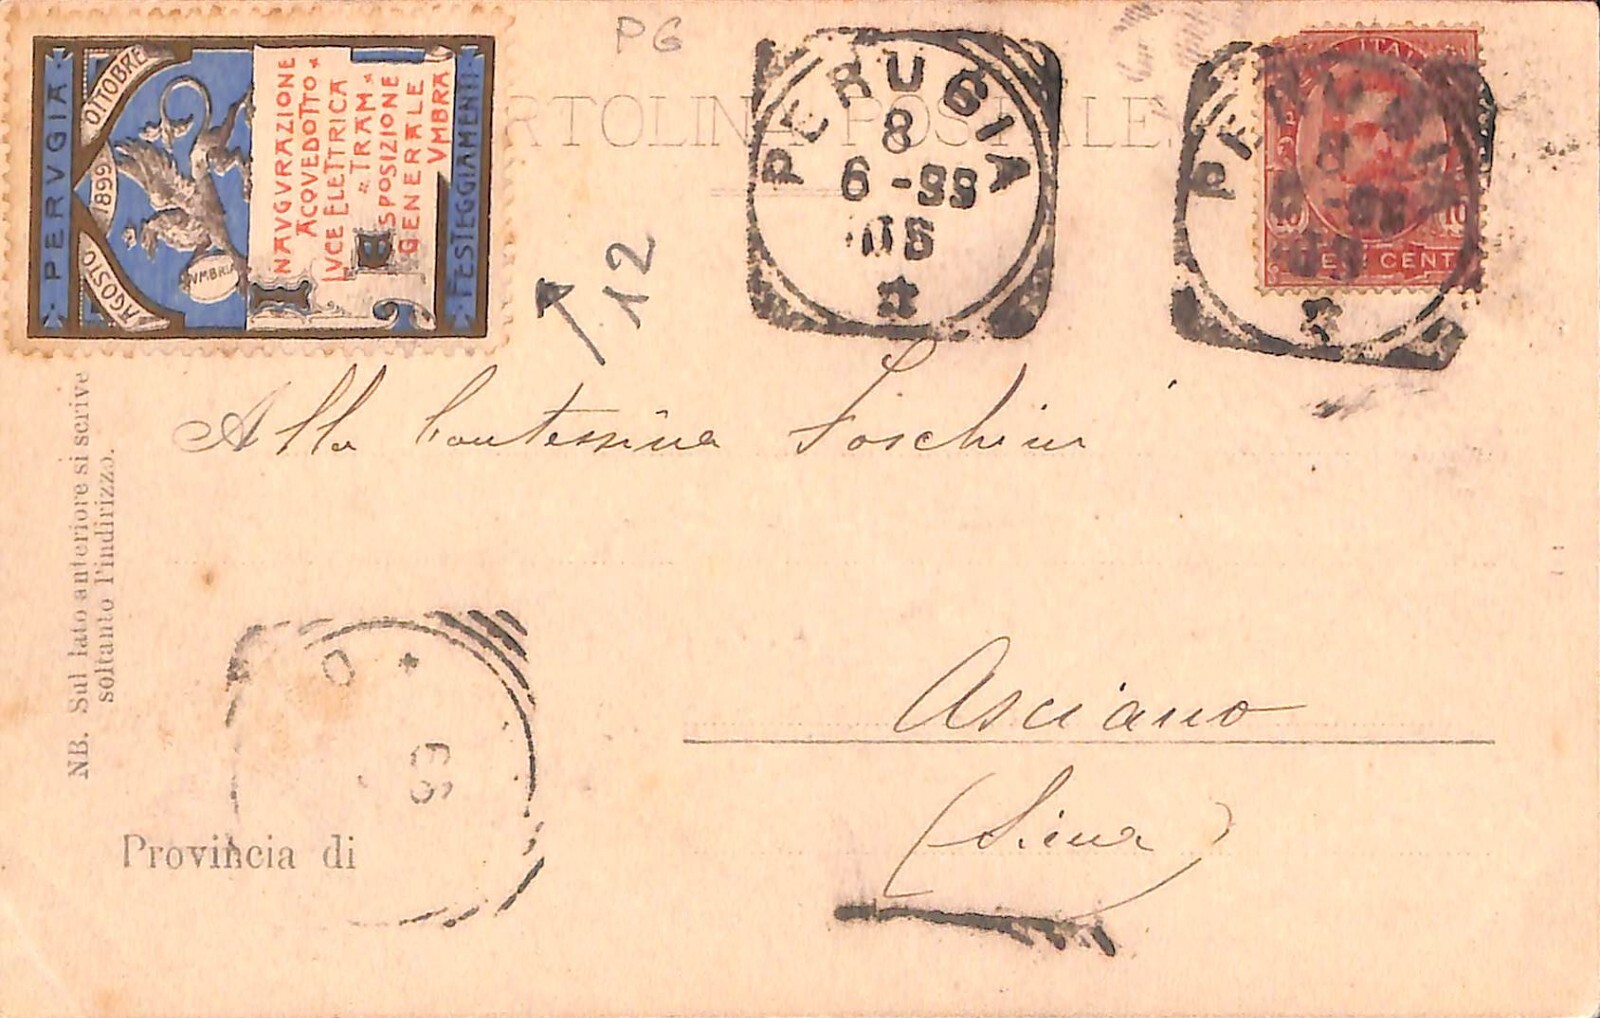 PG
PERVGIA
OTTOBRE
1899
AGOSTO
VMBRIA
INAVGVRAZIONE
ACQVEDOTTO
LVCE ELETTRICA
"TRAM"
E
ESPOSIZIONE
GENERALE
VMBRA
FESTEGGIAMENTI
CARTOLINA POSTALE
PERUGIA
8
6-99
PERUGIA
8
ITAL
10 10
CENT
12
Alla Contessina Foschini
NB. Sul lato anteriore si scrive
soltanto l'indirizzo.
O
Asciano
(Siena)
Provincia di